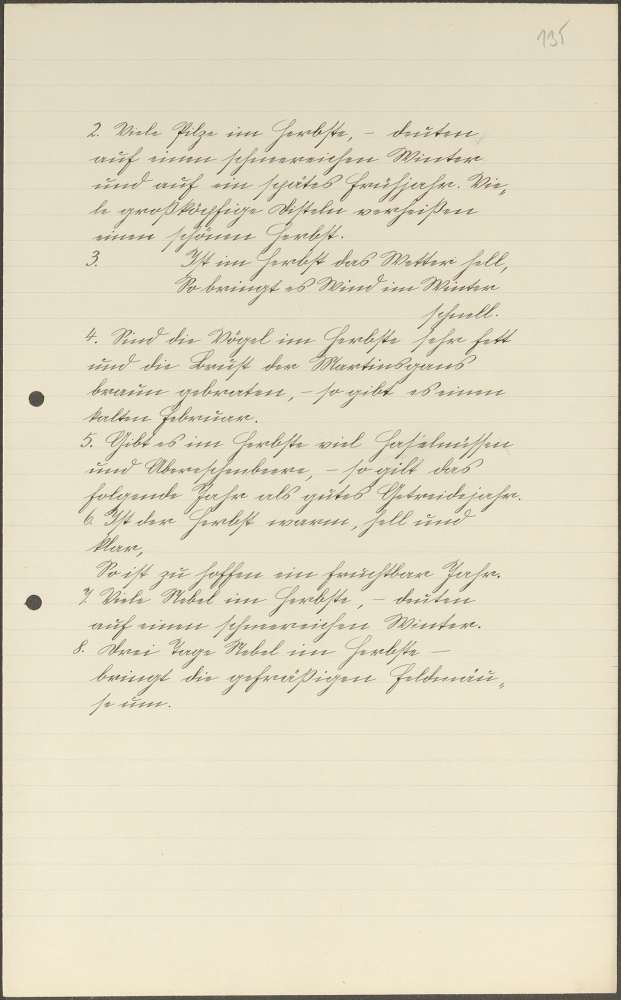 135
2. Viele Pilze im Herbste, – deuten
auf einen schneereichen Winter
und auf ein spätes Frühjahr. Vie„
le großköpfige Disteln verheißen
einen schönen Herbst.
3. Ist im Herbst das Wetter hell,
So bringt es Wind im Winter
schnell.
4. Sind die Vögel im Herbste sehr fett
und die Brust der Martinsgans
braun gebraten, – so gibt es einen
kalten Februar.
5. Gibt es im Herbste viel Haselnüssen
und Ebereschenbeere, – so gilt das
folgende Jahr als gutes Getreidejahr.
6. Ist der Herbst warm, hell und
klar,
So ist zu hoffen ein fruchtbar Jahr.
7. Viele Nebel im Herbste, – deuten
auf einen schneereichen Winter.
8. Drei Tage Nebel im Herbste –
bringt die gefräßigen Feldmäu„
se um.